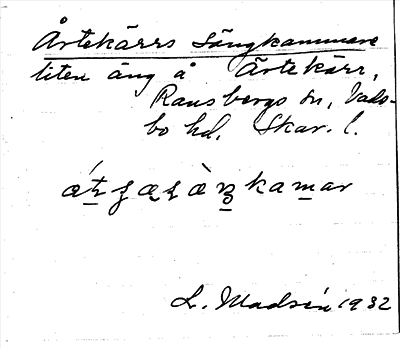 Ärtekärrs Sängkammare
liten äng å Ärtekärr,
Ransbergs sn, Vads-
bo hd. Skar. l.
L. Madsén 1932